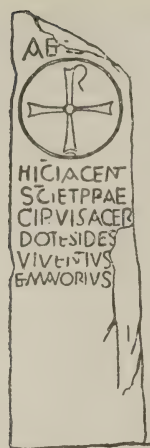 AE
HICIACENT
SCIETPRAE
CIPVISACER
DOTESIDES
VIVENTIVS
ETMAVORIVS